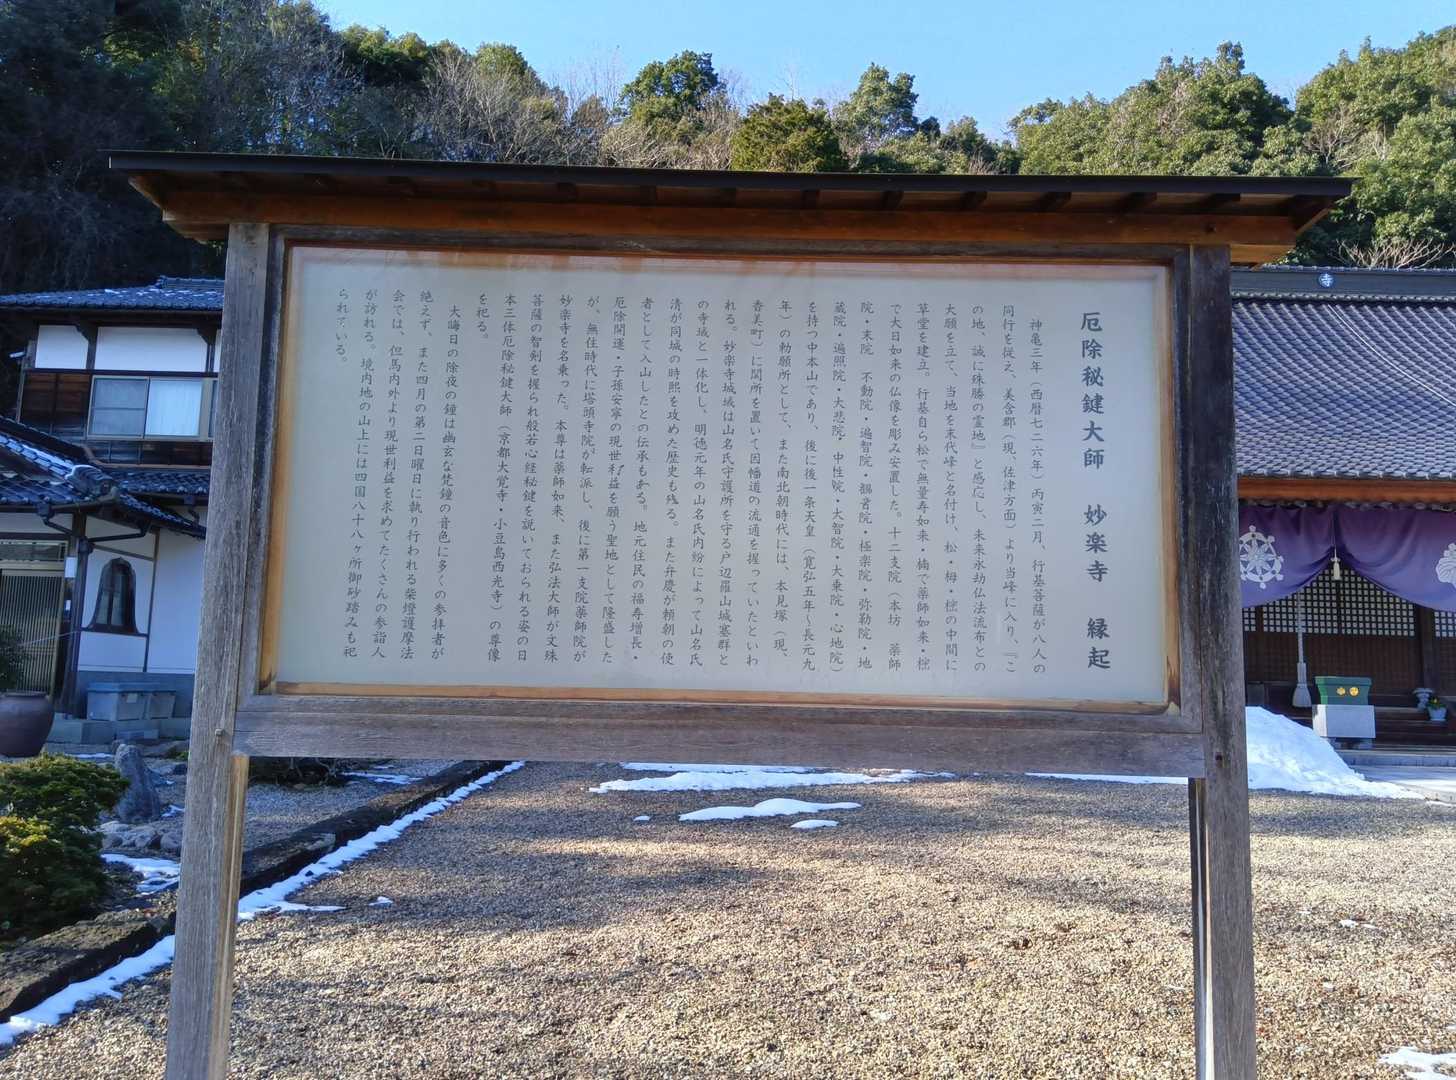 厄除秘鍵大師　妙楽寺　縁起
神亀三年（西暦七二六年）丙寅二月、行基菩薩が八人の
同行を従え、美含郡（現、佐津方面）より当峰に入り、『こ
の地、誠に殊勝の霊地』と感応し、未来永劫仏法流布との
大願を立て、当地を末代峰と名付け、松・栂・樒の中間に
草堂を建立。行基自ら松で無量寿如来・楠で薬師如来・樒
で大日如来の仏像を彫み安置した。十二支院（本坊　薬師
院・末院　不動院・遍智院・観音院・極楽院・弥勒院・地
蔵院・遍照院・大悲院・中性院・大智院・大乗院・心地院）
を持つ中本山であり、後に後一条天皇（寛弘五年～長元九
年）の勅願所として、また南北朝時代には、本見塚（現、
香美町）に関所を置いて因幡道の流通を握っていたといわ
れる。妙楽寺城域は山名氏守護所を守る戸辺羅山城塞群と
の寺域と一体化し、明徳元年の山名氏内紛によって山名氏
清が同城の時熙を攻めた歴史も残る。また弁慶が頼朝の使
者として入山したとの伝承もある。地元住民の福寿増長・
厄除開運・子孫安寧の現世利益を願う聖地として隆盛した
が、無住時代に塔頭寺院が転派し、後に第一支院薬師院が
妙楽寺を名乗った。本尊は薬師如来、また弘法大師が文殊
菩薩の智剣を握られ般若心経秘鍵を説いておられる姿の日
本三体厄除秘鍵大師（京都大覚寺・小豆島西光寺）の尊像
を祀る。
大晦日の除夜の鐘は幽玄な梵鐘の音色に多くの参拝者が
絶えず、また四月の第二日曜日に執り行われる柴燈護摩法
会では、但馬内外より現世利益を求めてたくさんの参詣人
が訪れる。境内地の山上には四国八十八ヶ所御砂踏みも祀
られている。
寺